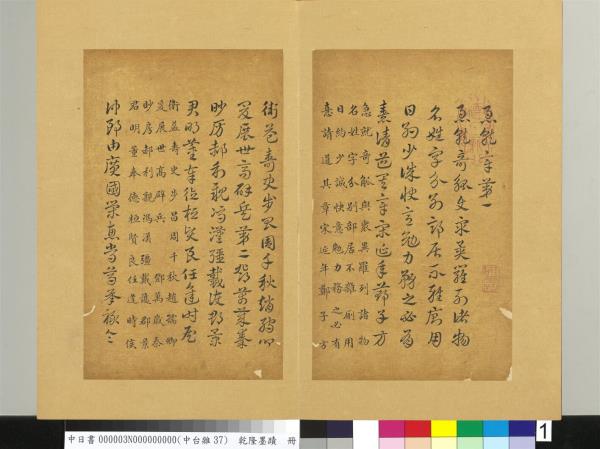 急就章第一
急就奇觚與衆異羅列諸物
名姓字分別部居不雜廁用
日約少誠快意勉力務之必有
憙請道其章宋延年鄭子方
急就奇觚與衆異羅列諸物
名姓字分別部居不雜廁用
日約少誠快意勉力務之必有
憙請道其章宋延年鄭子方
衛益壽史步昌周千秋趙孺卿
爰展世高辟兵第二鄧萬歲秦
眇房郝利親馮漢彊戴護郡景
君明董奉德桓賢良任逢時侯
衛益壽史步昌周千秋趙孺卿
爰展世高辟兵 鄧萬歲秦
眇房郝利親馮漢彊戴護郡景
君明董奉德桓賢良任逢時侯
仲郎由廣國榮惠常烏承祿令
中日書 000003N000000000(中台雜37) 乾隆墨蹟 冊
1